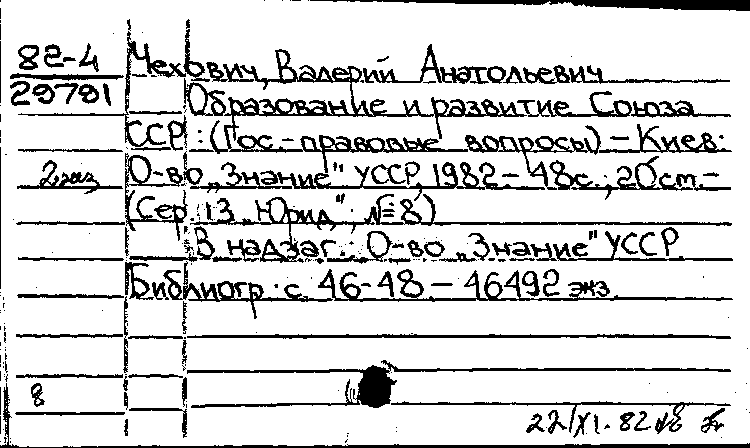 82-4
29791
Чехович, Валерий Анатольевич
Образование и развитие Союза
ССР : (Гос.-правовые вопросы) - Киев:
2 экз
О-во „Знание" УССР, 1982 - 48с.; 20 см. -
(Сер. 13 „Юрид."; №8)
В надзаг.: О-во „Знание" УССР.
Библиогр. с. 46-48 - 16492 экз.
8
22/XI.82